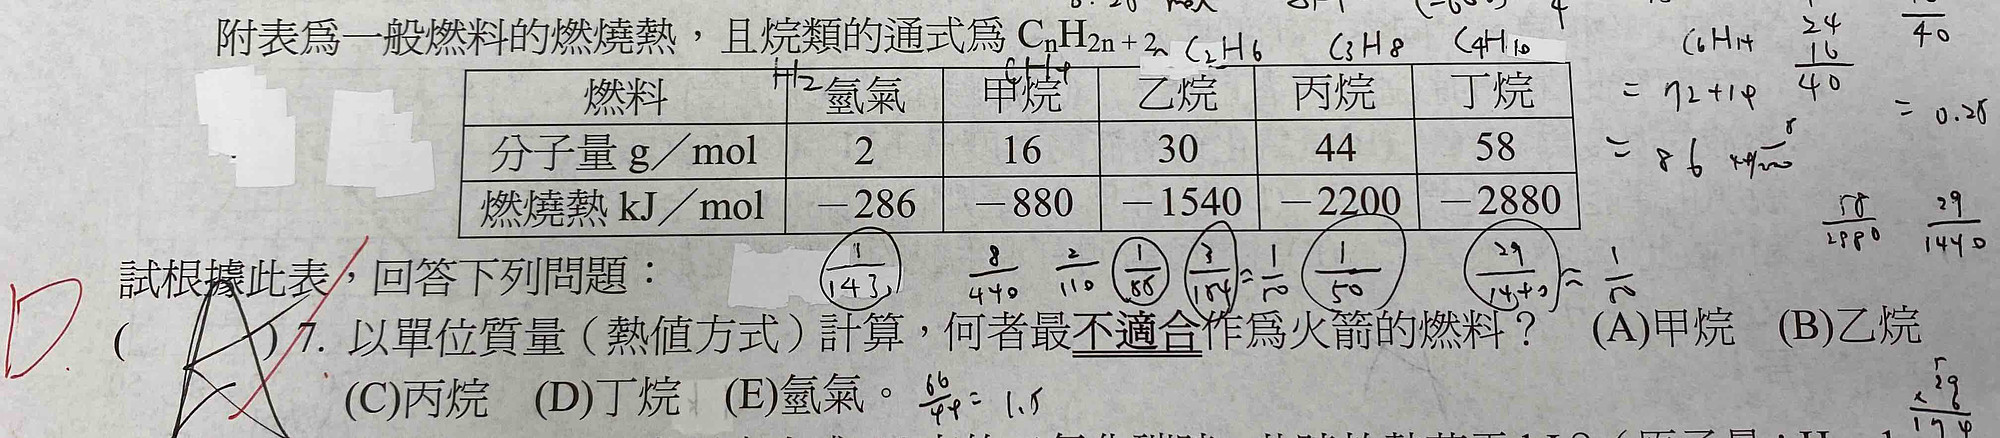 附表為一般燃料的燃燒熱，且烷類的通式為 CnH2n + 2。 C2H6 C3H8 C4H10 C6H14 24 40
= 72+14 16 40
= 86 = 0.25
燃料 H2 氫氣 甲烷 CH4 乙烷 丙烷 丁烷
分子量 g／mol 2 16 30 44 58
燃燒熱 kJ／mol －286 －880 －1540 －2200 －2880
58/2880 29/1440
試根據此表，回答下列問題： 1/143 8/440 2/110 1/55 3/154 = 1/50 1/50 29/1440 = 1/50
D. ( A ) 7. 以單位質量（熱值方式）計算，何者最不適合作為火箭的燃料？ (A)甲烷 (B)乙烷
(C)丙烷 (D)丁烷 (E)氫氣。 66/44 = 1.5 29 × 6 174